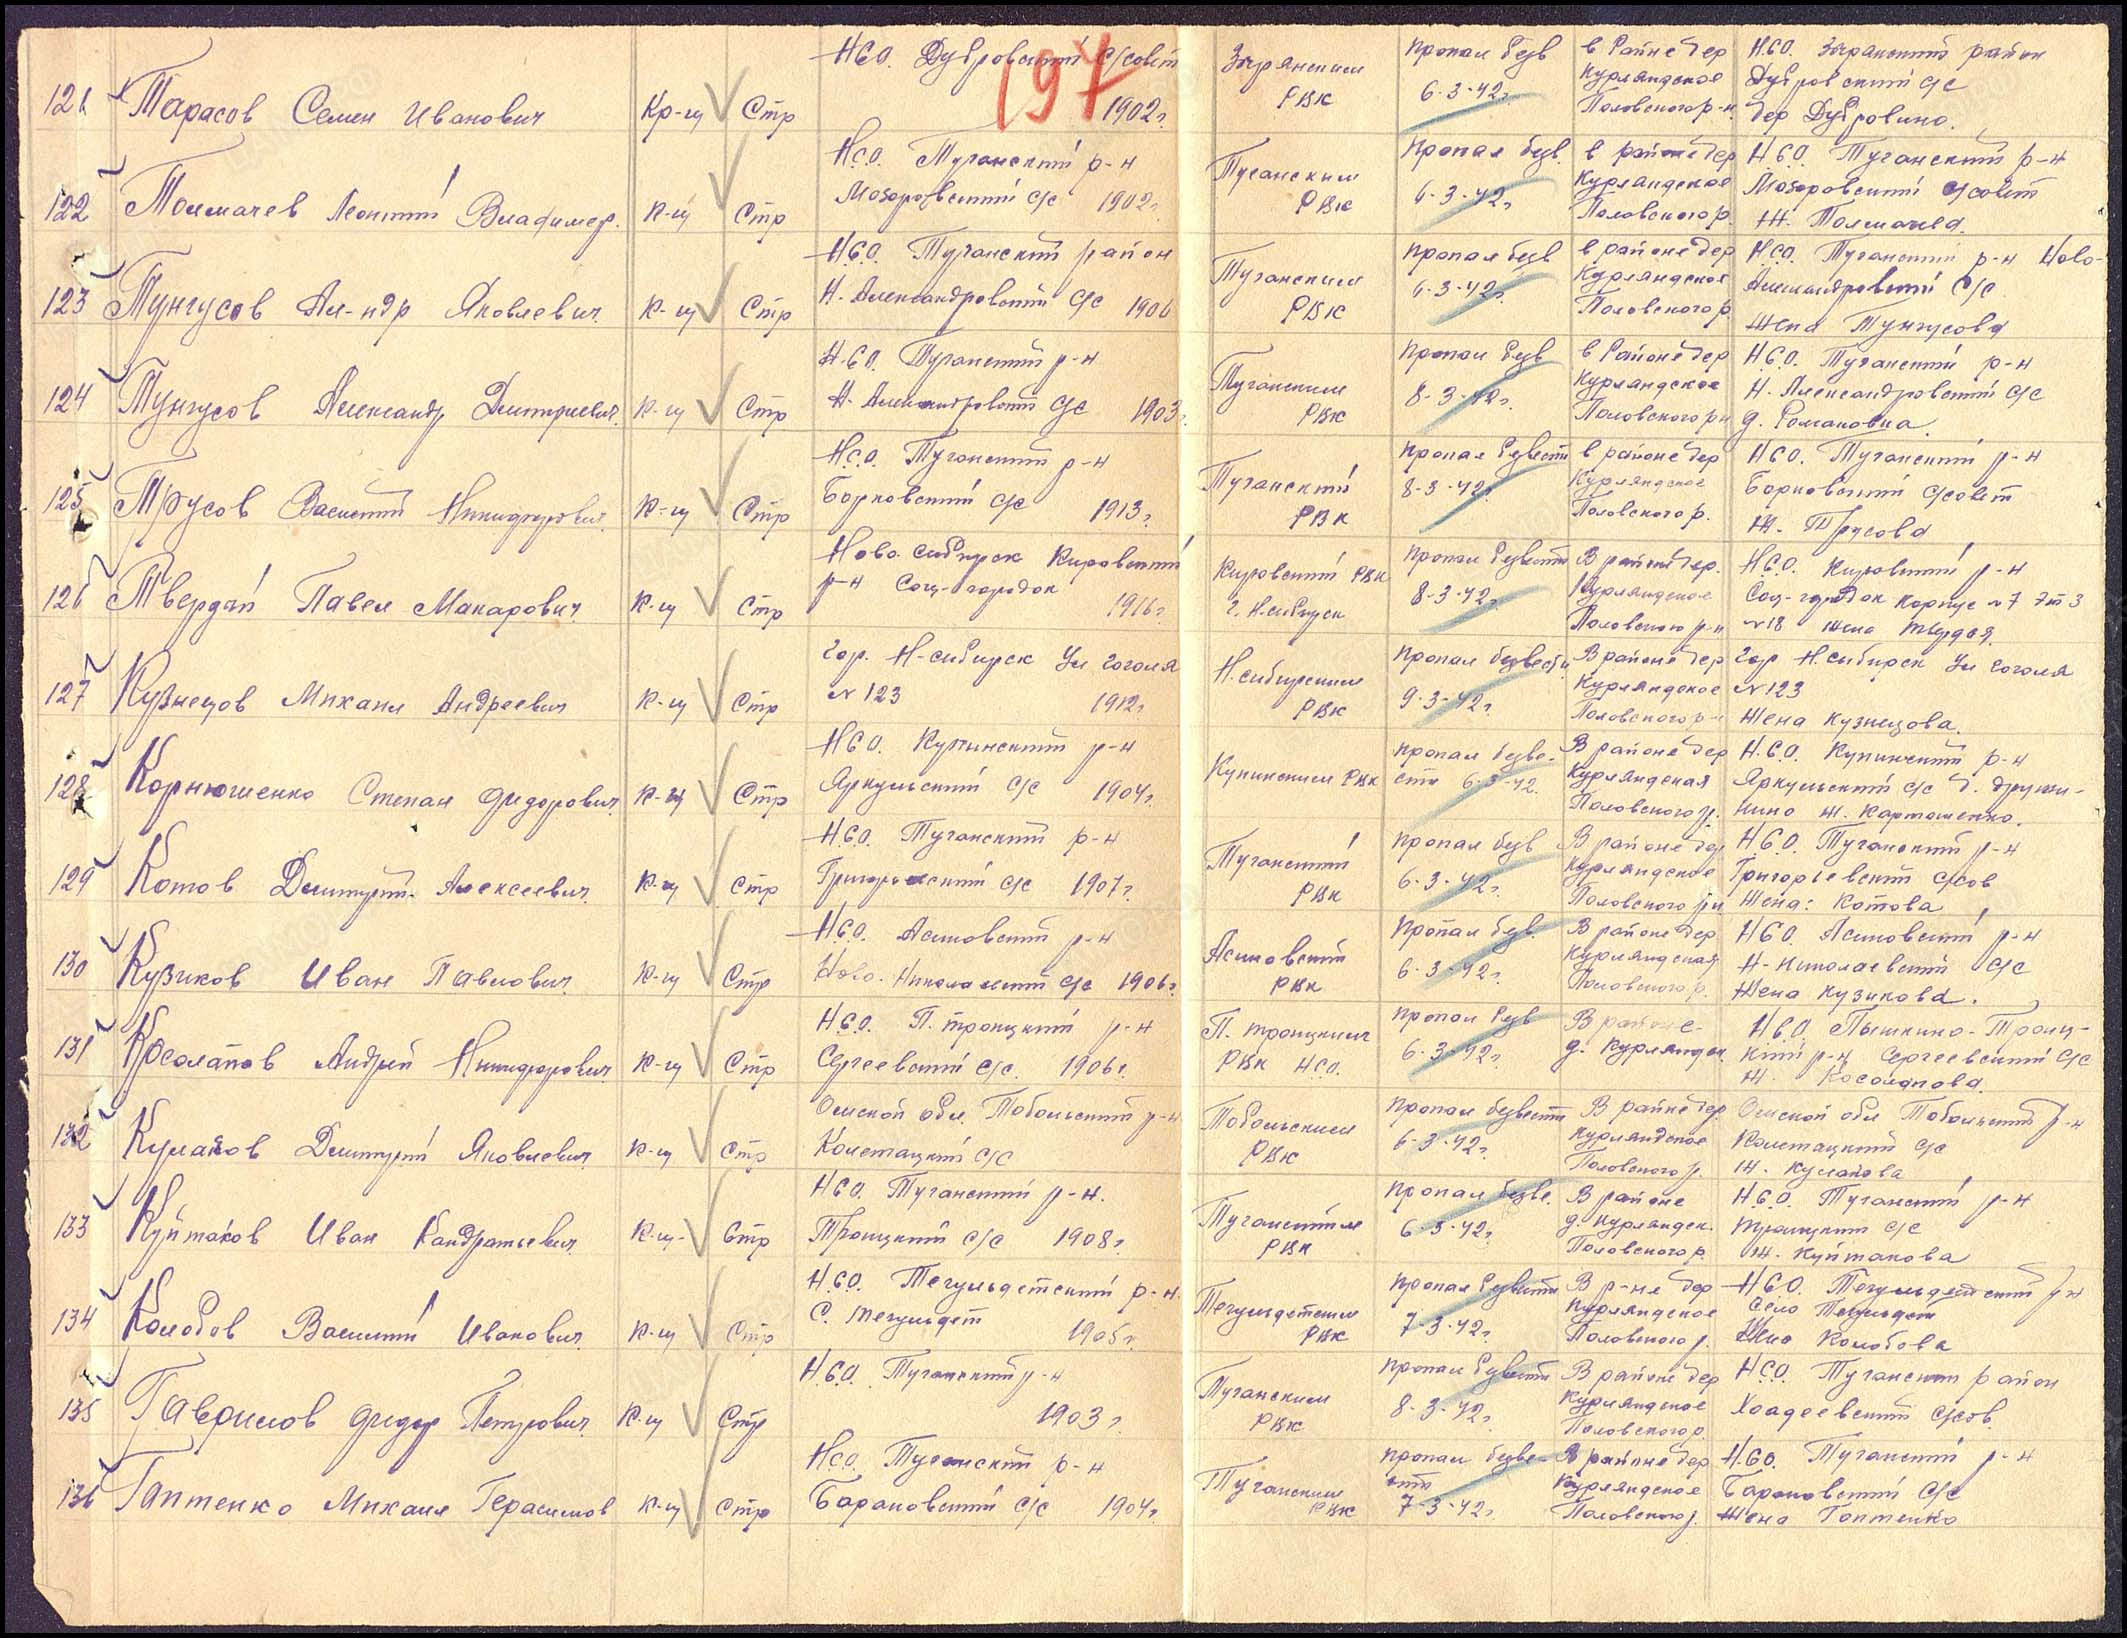 197
121 Тарасов Семен Иванович Кр-ц Стр Н.С.О. Дубровский с/совет 1902г. Зырянским РВК Пропал безв 6-3-42г. в Районе дер Курляндское Половского р-н. Н.С.О. Зырянский район Дубровский с/с дер Дубровино.
122 Толмачев Леонтий Владимер. К-ц Стр Н.С.О. Туганский р-н с/с 1902г. Туганским РВК Пропал безв. 6-3-42г. в районе дер Курляндское Половского р. Н.С.О. Туганский р-н с/совет Ж. Толмачева.
123 Тунгусов Ал-ндр Яковлевич К-ц Стр Н.С.О. Туганский район Н-Александровский с/с 1906 Туганским РВК Пропал безв 6-3-42г. в районе дер Курляндское Половского р. Н.С.О. Туганский р-н Ново-Александровский с/с Жена Тунгусова
124 Тунгусов Александр Дмитриевич К-ц Стр Н.С.О. Туганский р-н Н-Александровский с/с 1903г. Туганским РВК Пропал безв 8-3-42г. в Районе дер Курляндское Половского рн Н.С.О. Туганский р-н Н-Александровский с/с д. Романовка
125 Трусов Василий Никифорович К-ц Стр Н.С.О. Туганский р-н Борковский с/с 1913г. Туганский РВК Пропал безвести 8-3-42г. в районе дер Курляндское Половского р. Н.С.О. Туганский р-н Борковский с/совет Ж. Трусова
126 Твердой Павел Макарович К-ц Стр Ново-Сибирск Кировский р-н Соц-городок 1916г. Кировский РВК г. Н.сибирск Пропал безвести 8-3-42г. В районе дер. Курляндское Половского р-н Н.С.О. Кировский р-н Соц-городок корпус №7 Эт 3 №18 жена Твердоя
127 Кузнецов Михаил Андреевич К-ц Стр Гор. Н-сибирск Ул Гоголя №123 1912г. Н.сибирским РВК Пропал безвести 9-3-42г. В районе дер Курляндское Половского р- Гор Н.сибирск Ул Гоголя №123 Жена Кузнецова.
128 Корнюшенко Степан Фидорович К-ц Стр Н.С.О. Купинский р-н Яркульский с/с 1904г. Купинским РВК Пропал безвести 6-3-42. В районе дер Курляндская Половского р. Н.С.О. Купинский р-н Яркульский с/с
129 Котов Дмитрий Алексеевич К-ц Стр Н.С.О. Туганский р-н с/с 1907г. Туганский РВК Пропал безв 6-3-42г. В районе дер Курляндское Половского рн Н.С.О. Туганский р-н Григорьевский с/сов Жена: Котова
130 Кузиков Иван Павлович К-ц Стр Н.С.О. Асиновский р-н Ново-Николаевский с/с 1906г. Асиновский РВК Пропал безв. 6-3-42г. В районе дер Курляндская Половского р. Н.С.О. Асиновский р-н Н-Николаевский с/с Жена Кузикова.
131 Косолапов Андрей Никифорович К-ц Стр Н.С.О. П.Троицкий р-н Сергеевский с/с. 1906г. П.Троицким РВК НСО. Пропал безв 6-3-42г. В районе д. Курляндск. Н.С.О. Пышкино-Троицкий р-н Сергеевский с/с Ж. Косолапова
132 Кулаков Дмитрий Яковлевич К-ц Стр Омской обл. Тобольский р-н с/с Тобольским РВК Пропал безвести 6-3-42г. В районе дер Курляндское Половского р. Омской обл Тобольский р-н с/с Ж. Кулакова
133 Куйтаков Иван Кандратьевич К-ц Стр Н.С.О. Туганский р-н. Троицкий с/с 1908г. Туганским РВК Пропал безве. 6-3-42г. В районе д. Курляндск. Половского р. Н.С.О. Туганский р-н Троицкий с/с Ж. Куйтакова
134 Колобов Василий Иванович К-ц Стр Н.С.О. Тегульдетский р-н. С. Тегульдет 1905г. Тегульдетским РВК Пропал безвести 7-3-42г. В р-не дер Курляндское Половского р. Н.С.О. Тегульдетский р-н Село Тегульдет Жена Колобова
135 Гаврилов Фидор Петрович К-ц Стр Н.С.О. Туганский р-н 1903г. Туганским РВК Пропал безвести 8-3-42г. В районе дер Курляндское Половского р. Н.С.О. Туганский район с/сов.
136 Гаптенко Михаил Герасимов К-ц Стр Н.С.О. Туганский р-н Барановский с/с 1904г. Туганским РВК Пропал безвести 7-3-42г. В районе дер Курляндское Половского р. Н.С.О. Туганский р-н Барановский с/с Жена Гаптенко